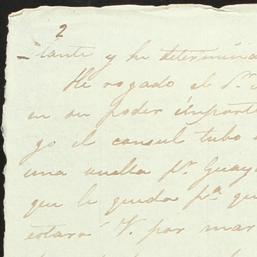 2
-tante y he determina
He rogado al Sr.
en su poder import
go el consul tubo
una vuelta pr. Guay
que le queda pa. qu
estará V. por mar